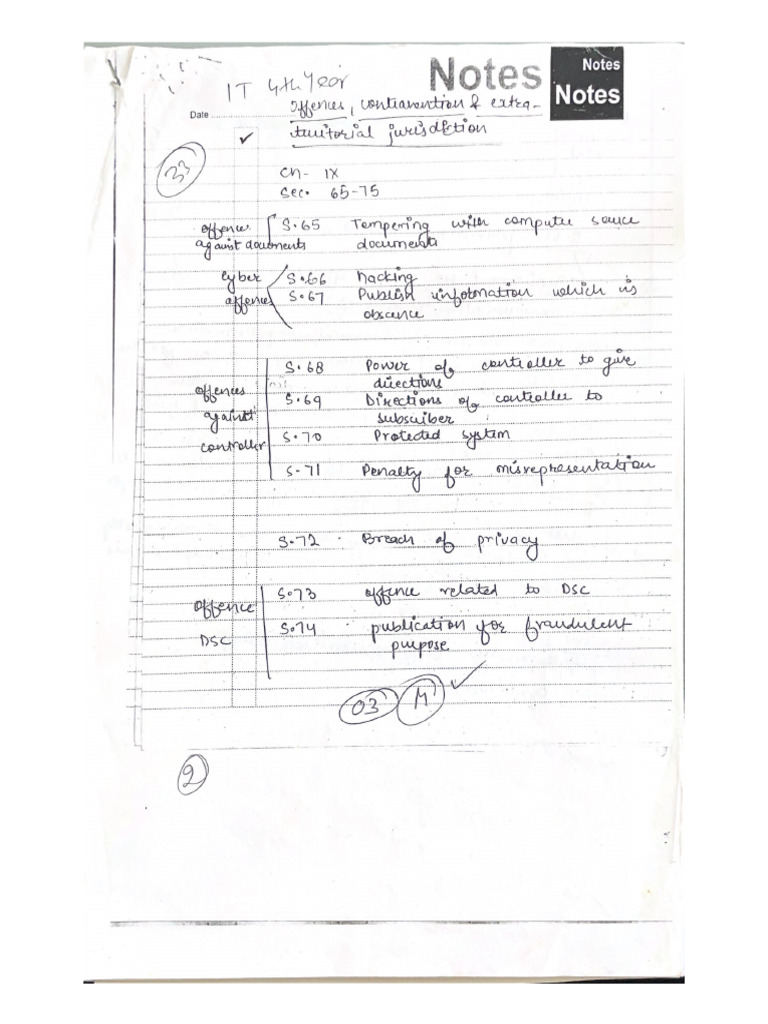 IT 4th Year
Notes
Notes
Notes
Date
Offences, contravention & extra-
territorial jurisdiction
33
Ch- IX
Sec. 65-75
offence against documents
S.65 Tempering with computer source
documents
Cyber offences
S.66 Hacking
S.67 Publish information which is
obscence
offences against controller
S.68 Power of controller to give
directions
S.69 Directions of controller to
subscriber
S.70 Protected system
S-71 Penalty for misrepresentation
S.72 . Breach of privacy
offence DSC
S.73 offence related to DSC
S.74 publication for fraudulent
purpose
03 M
2